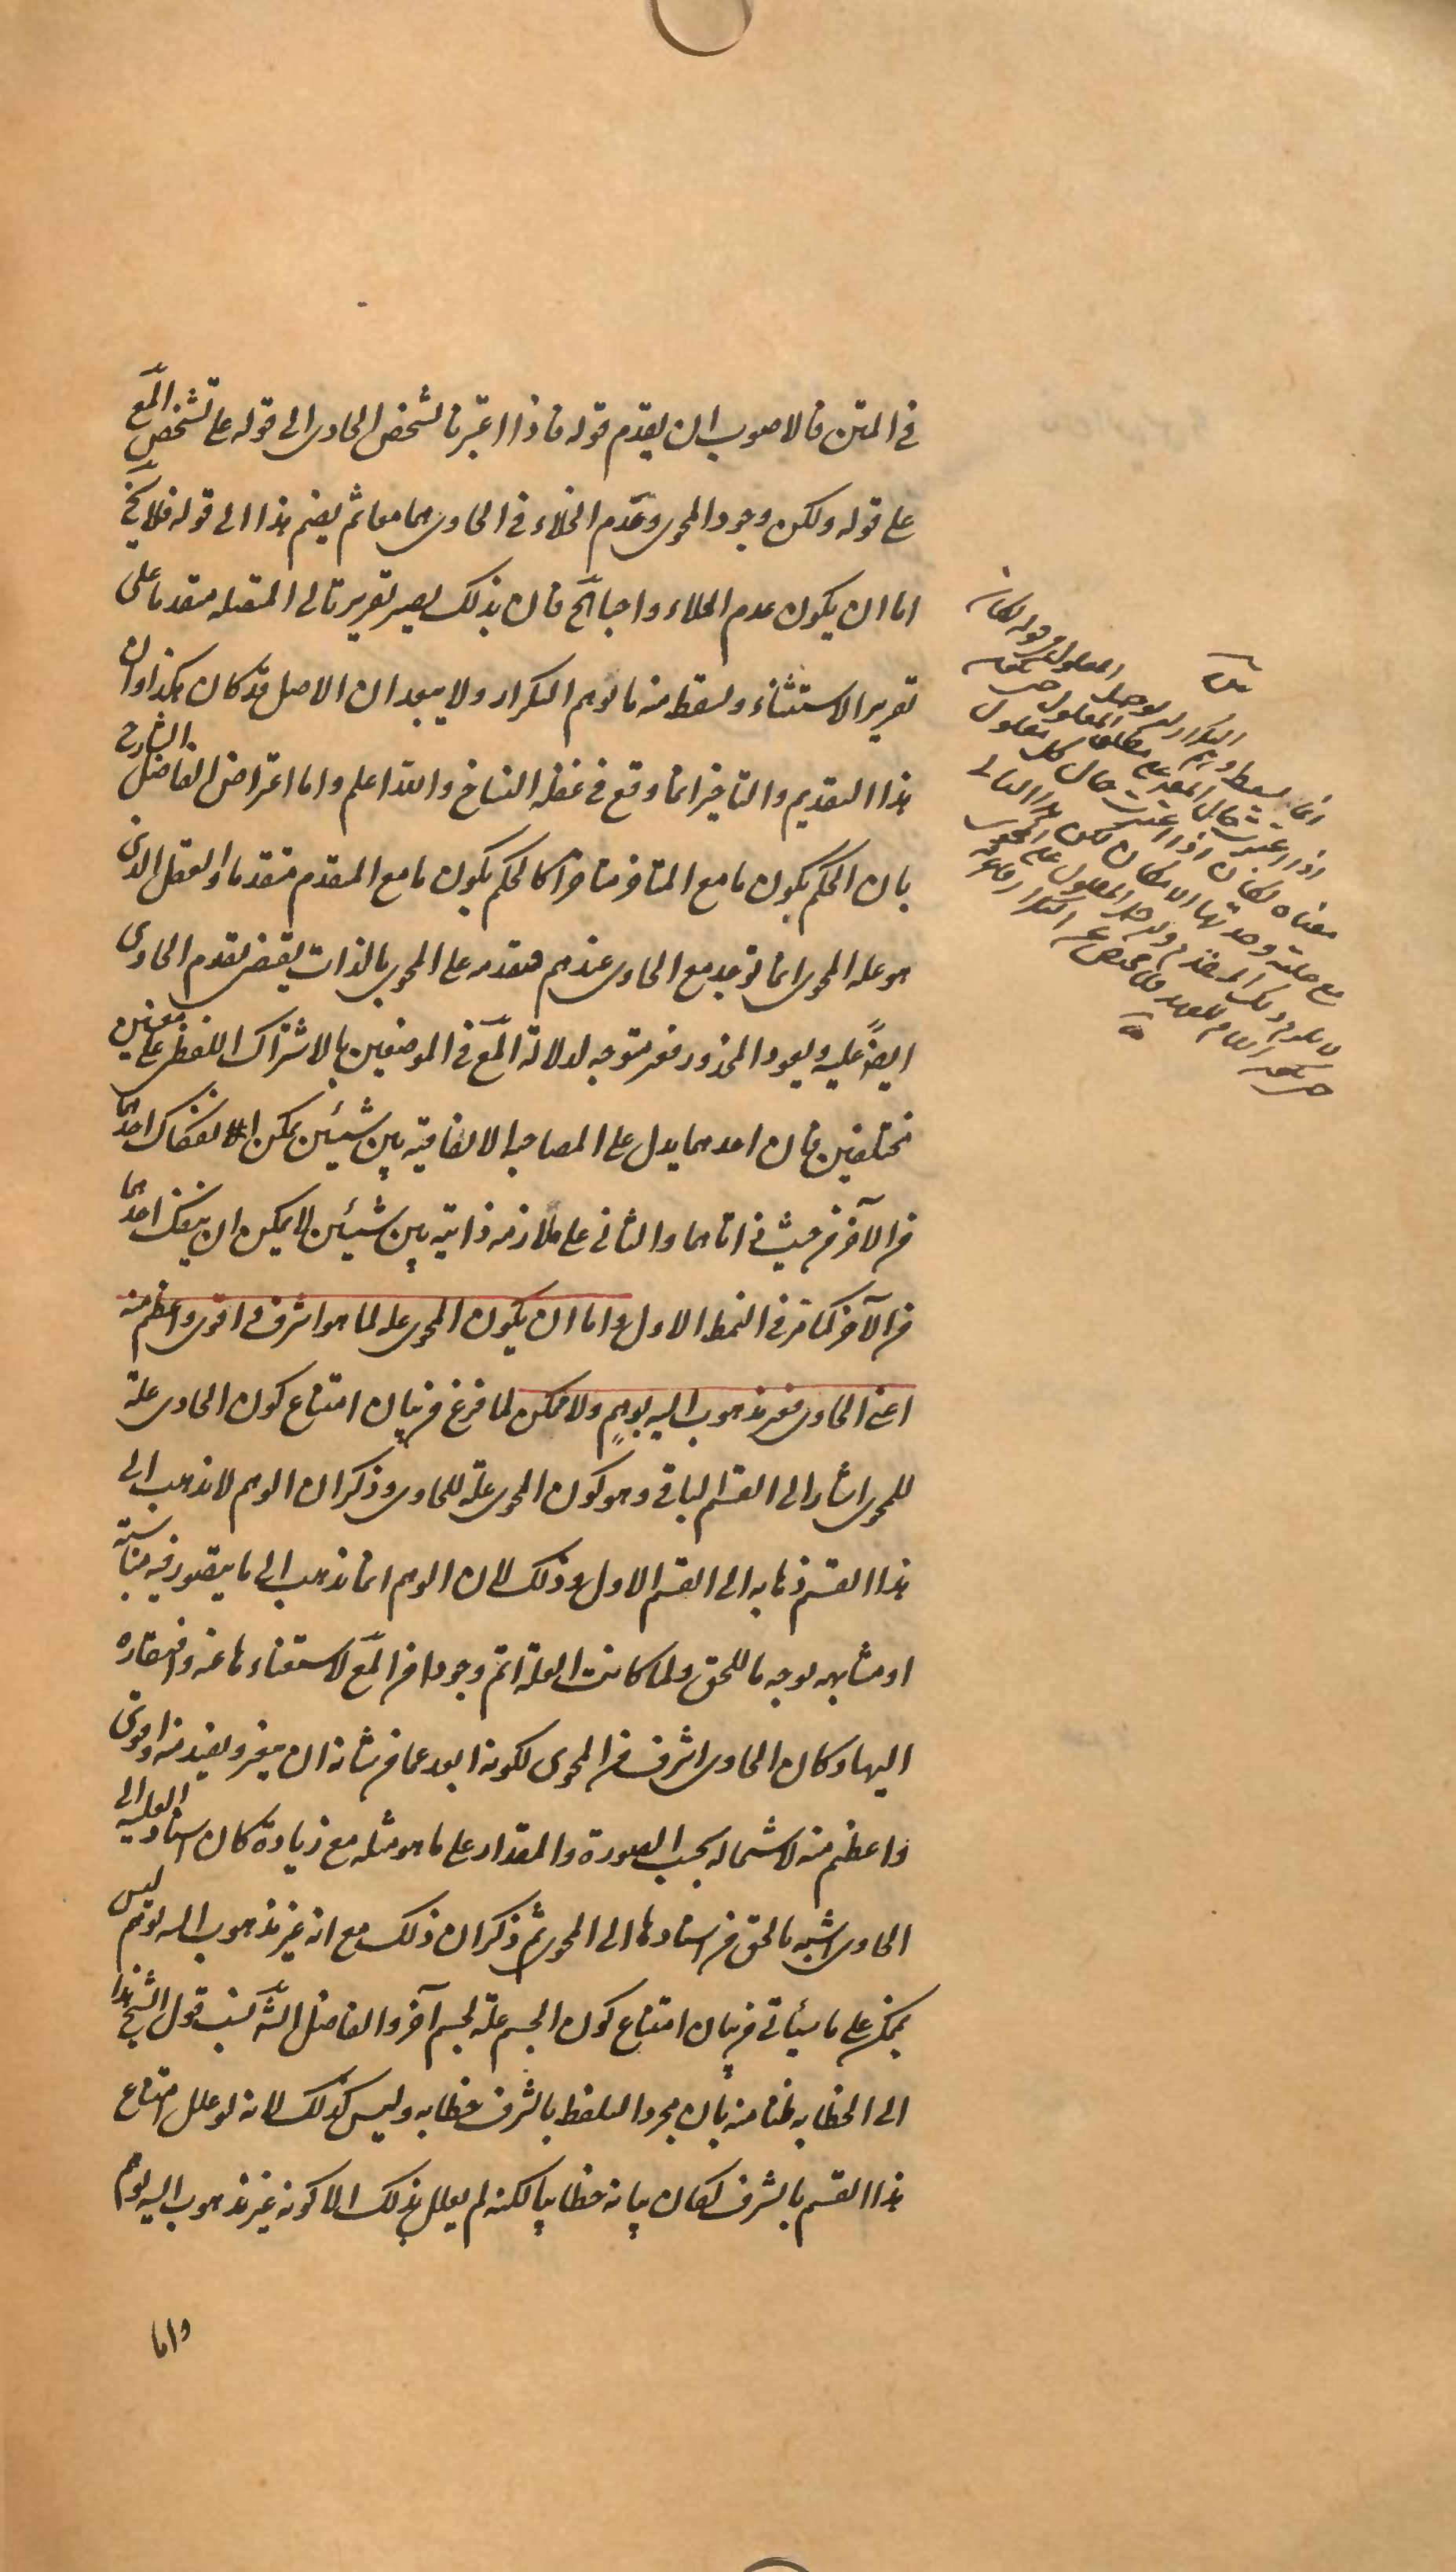 في المتن فالاصوب ان يقدم قوله فاذا اعتبرنا تشخص الحاوى الى قوله على تشخص المع
على قوله ولكن وجود المحوى وعدم الخلاء في الحاوى هما معا ثم يضم هذا الى قوله فلا يخ
اما ان يكون عدم الخلاء واجبا الخ فان بذلك يصير تقرير تالى المتصله متقدما على
تقرير الاستثناء ولسقط منه ما يوهم التكرار ولا يبعد ان الاصل قد كان هكذا وان
هذا التقديم والتاخير انما وقع في غفلة النساخ والله اعلم واما اعتراض الفاضل الشارح
بان الحكم بكون ما مع المتاخر متاخرا كالحكم بكون ما مع المتقدم متقدما والعقل الذى
هو علة المحوى انما توجد مع الحاوى عندهم متقدمه على المحوى بالذات يقتضى تقدم الحاوى
ايضا عليه ويعود المحذور فغير متوجه لدلالة المع في الموضعين بالاشتراك اللفظى على معنيين
مختلفين فان احدهما يدل على المصاحبه الاتفاقية بين شيئين يمكن انفكاك احدهما
من الآخر من حيث ذاتاهما والثانى على ملازمه ذاتية بين شيئين لا يمكن ان ينفك احدهما
من الآخر كما مر في النمط الاول واما ان يكون المحوى علة لما هو اشرف واقوى واعظم منه
اعنى الحاوى فغير مذهوب اليه بوهم ولا ممكن لما فرغ من بيان امتناع كون الحاوى علة
للمحوى اشار الى القسم الباقى وهو كون المحوى علة للحاوى وذكر ان الوهم لا يذهب الى
هذا القسم ذهابه الى القسم الاول وذلك لان الوهم انما يذهب الى ما يتصور فيه مناسبة
او مشابهه بوجه ما للحق ولما كانت العلة اتم وجودا من المع لاستغناءها عنه وافتقاره
اليها وكان الحاوى اشرف من المحوى لكونه ابعد عما من شانه ان يتغير ويفسد منه واقوى
واعظم منه لاشتماله بحسب الصورة والمقدار على ما هو مثله مع زيادة كان اسناد العلية الى
الحاوى اشبه بالحق من اسنادها الى المحوى ثم ذكر ان ذلك مع انه غير مذهوب اليه بوهم ليس
بممكن على ما سيأتى من بيان امتناع كون الجسم علة لجسم آخر والفاضل الش نسب قول الشيخ هذا
الى الخطابه ظنا منه بان مجرد التلفظ بالشرف خطابه وليس كذلك لانه لو علل امتناع
هذا القسم بالشرف لكان بيانه خطابيا لكنه لم يعلل بذلك الا كونه غير مذهوب اليه بوهم
واما